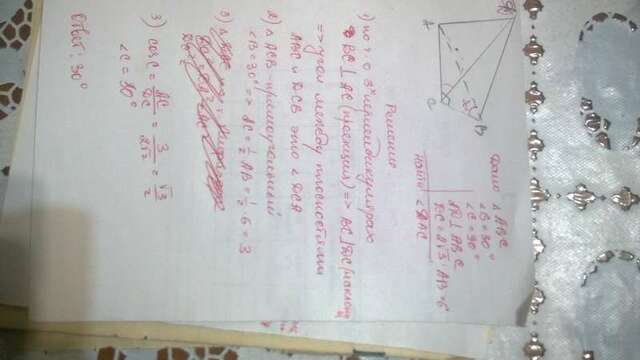 Дано
△ ABC
∠B = 30°
∠C = 90°
AD ⊥ ABC
DC = 2√3; AB = 6
Найти
A
C
B
Решение
1) по т. о 3х перпендикулярах
BC ⊥ AC (проекция) => BC ⊥ DC (наклон
=> угол между плоскостями
ABC и DCB это ∠ DCA
2) △ ACB - прямоугольный
∠B = 30° => AC = 1/2 AB = 1/2 · 6 = 3
3)
3) cos C = AC/DC = 3/2√3 = √3/2
∠C = 30°
Ответ: 30°